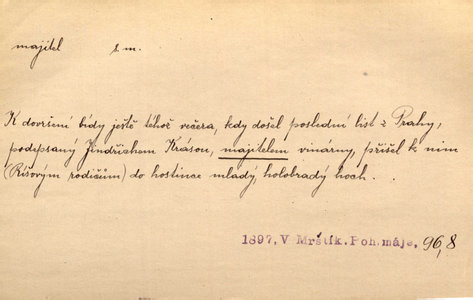 majitel s.m.
K dovršení bídy ještě téhož večera, kdy došel poslední list z Prahy,
podepsaný Jindřichem Krásou, majitelem vinárny, přišel k nim
(Ríšovým rodičům) do hostince mladý, holobradý hoch . .
1897, V. Mrštík. Poh. máje, 96,8